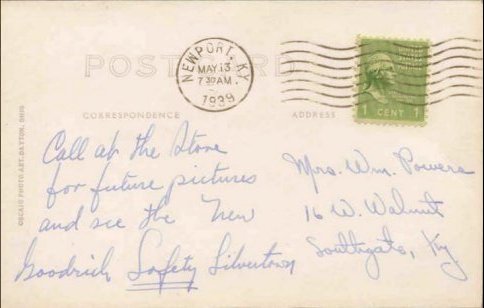 POSTCARD
NEWPORT, KY.
MAY 13
7 30 AM
1939
1 CENT 1
CORRESPONDENCE
ADDRESS
Call at the Store
for future pictures
and see the New
Goodrich Safety Silvertown
Mrs. Wm. Powers
16 W. Walnut
Southgate, Ky
PHOTO ART, DAYTON, OHIO